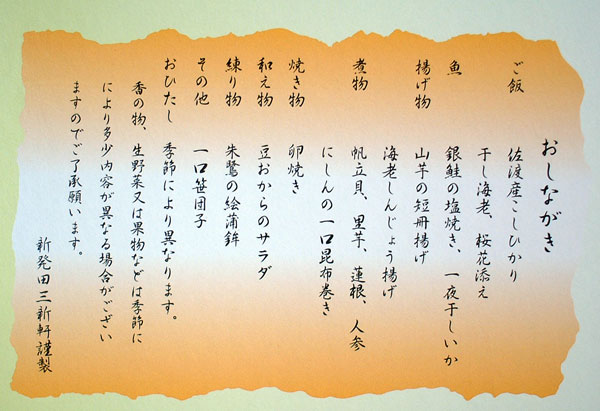 おしながき
ご飯　佐渡産こしひかり
干し海老、桜花添え
魚　銀鮭の塩焼き、一夜干しいか
揚げ物　山芋の短冊揚げ
海老しんじょう揚げ
煮物　帆立貝、里芋、蓮根、人参
にしんの一口昆布巻き
焼き物　卵焼き
和え物　豆おからのサラダ
練り物　朱鷺の絵蒲鉾
その他　一口笹団子
おひたし　季節により異なります。
香の物、生野菜又は果物などは季節に
により多少内容が異なる場合がござい
ますのでご了承願います。
新発田三新軒謹製